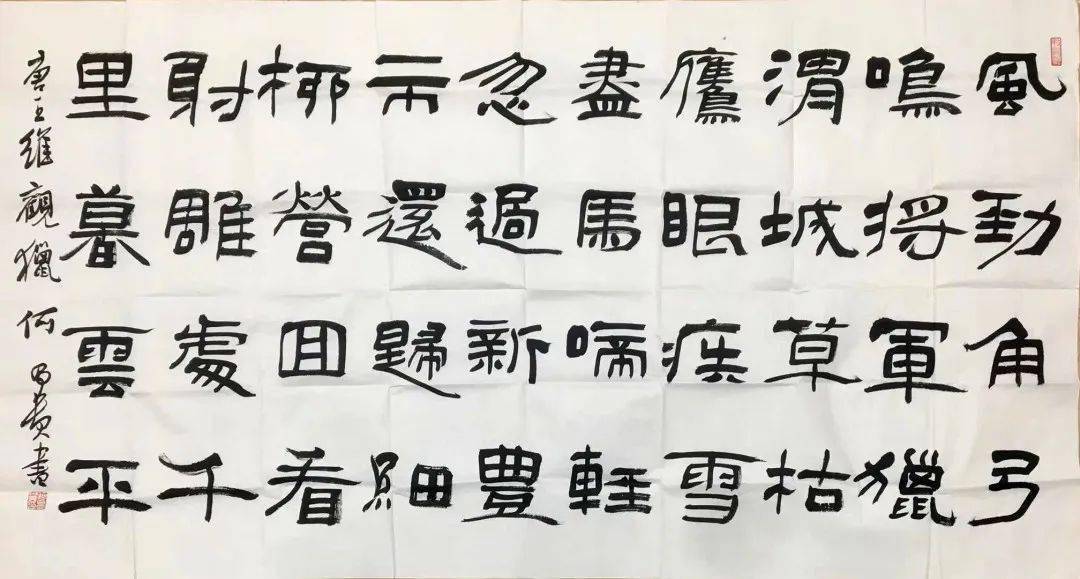 風勁角弓
鳴將軍獵
渭城草枯
鷹眼疾雪
盡馬啼輕
忽過新豊
市還歸細
柳營回看
射雕處千
里暮雲平
唐王維觀獵 何 書